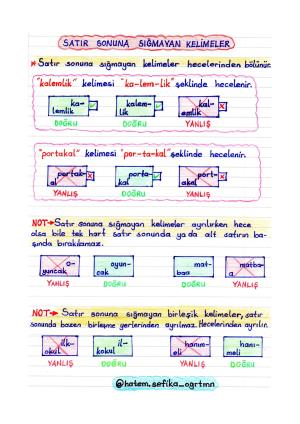 SATIR SONUNA SIĞMAYAN KELİMELER
* Satır sonuna sığmayan kelimeler hecelerinden bölünür.
"kalemlik" kelimesi "ka-lem-lik" şeklinde hecelenir.
ka- kalem- kal-
lemlik lik emlik
DOĞRU DOĞRU YANLIŞ
"portakal" kelimesi "por-ta-kal" şeklinde hecelenir.
portak- porta- port-
al kal akal
YANLIŞ DOĞRU YANLIŞ
NOT→ Satır sonuna sığmayan kelimeler ayrılırken hece
olsa bile tek harf satır sonunda ya da alt satırın ba-
şında bırakılamaz.
o- oyun- mat- matba-
yuncak cak baa a
YANLIŞ DOĞRU DOĞRU YANLIŞ
NOT→ Satır sonuna sığmayan birleşik kelimeler, satır
sonunda bazen birleşme yerlerinden ayrılmaz. Hecelerinden ayrılır.
ilk- il- hanım- hanı-
okul kokul eli meli
YANLIŞ DOĞRU YANLIŞ DOĞRU
@hatem.sefika_ogrtmn